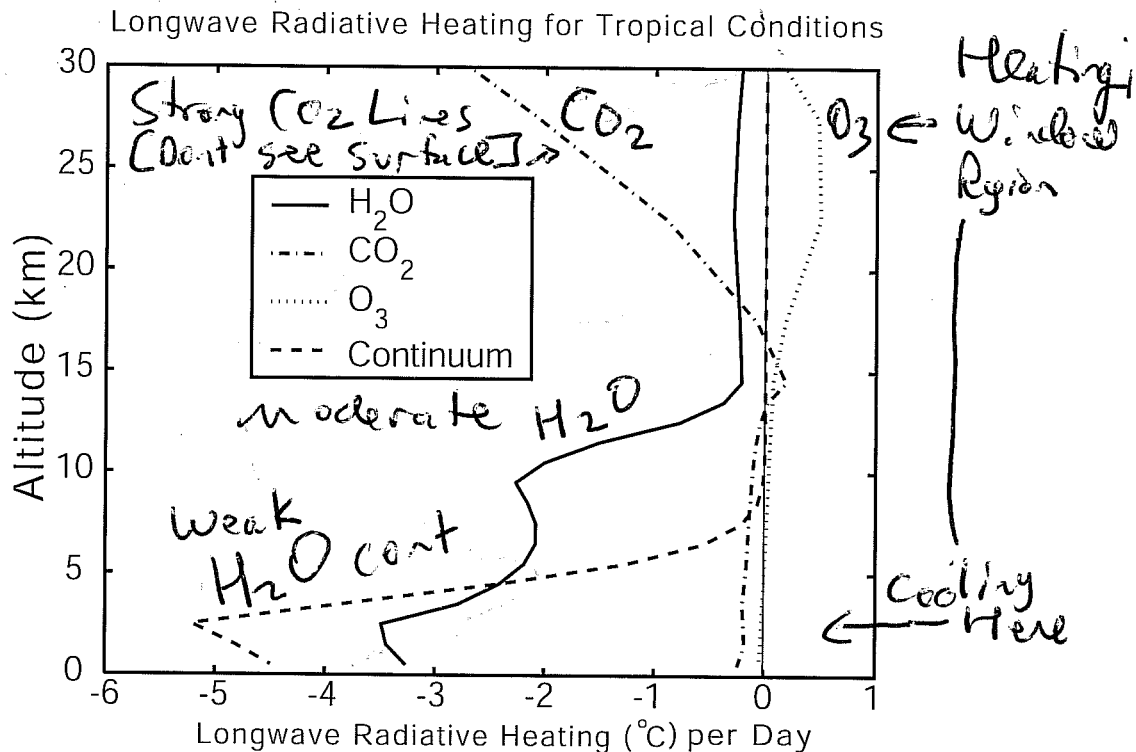 Longwave Radiative Heating for Tropical Conditions
30
25
20
15
10
5
0
Altitude (km)
Strong CO2 Lines
[Dont see surface]→
CO2
O3 ←
Heating,
Window
Region
H2O
CO2
O3
Continuum
moderate H2O
Weak
H2O cont
Cooling
← Here
-6 -5 -4 -3 -2 -1 0 1
Longwave Radiative Heating (°C) per Day